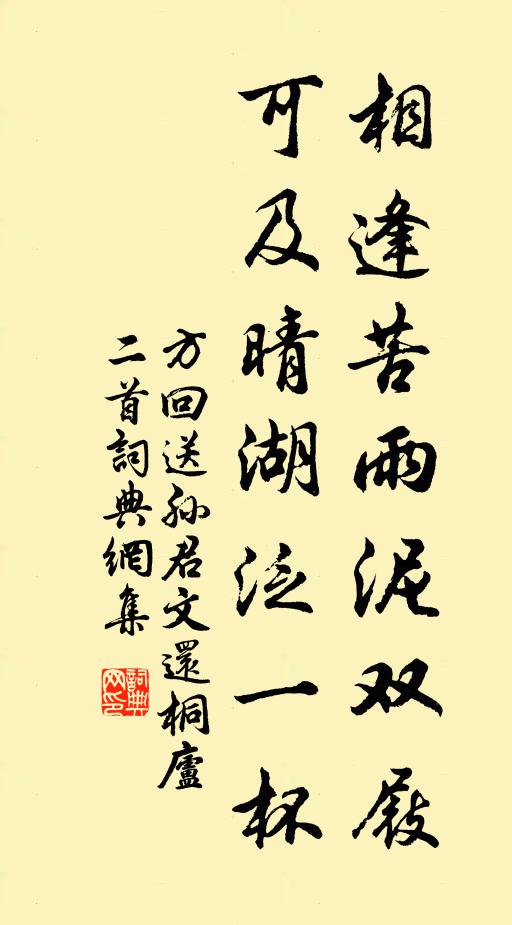 相逢苦雨泥双屐
可及晴湖泛一杯
方回送孙君文還桐廬
二首詞典網集
詞典网印